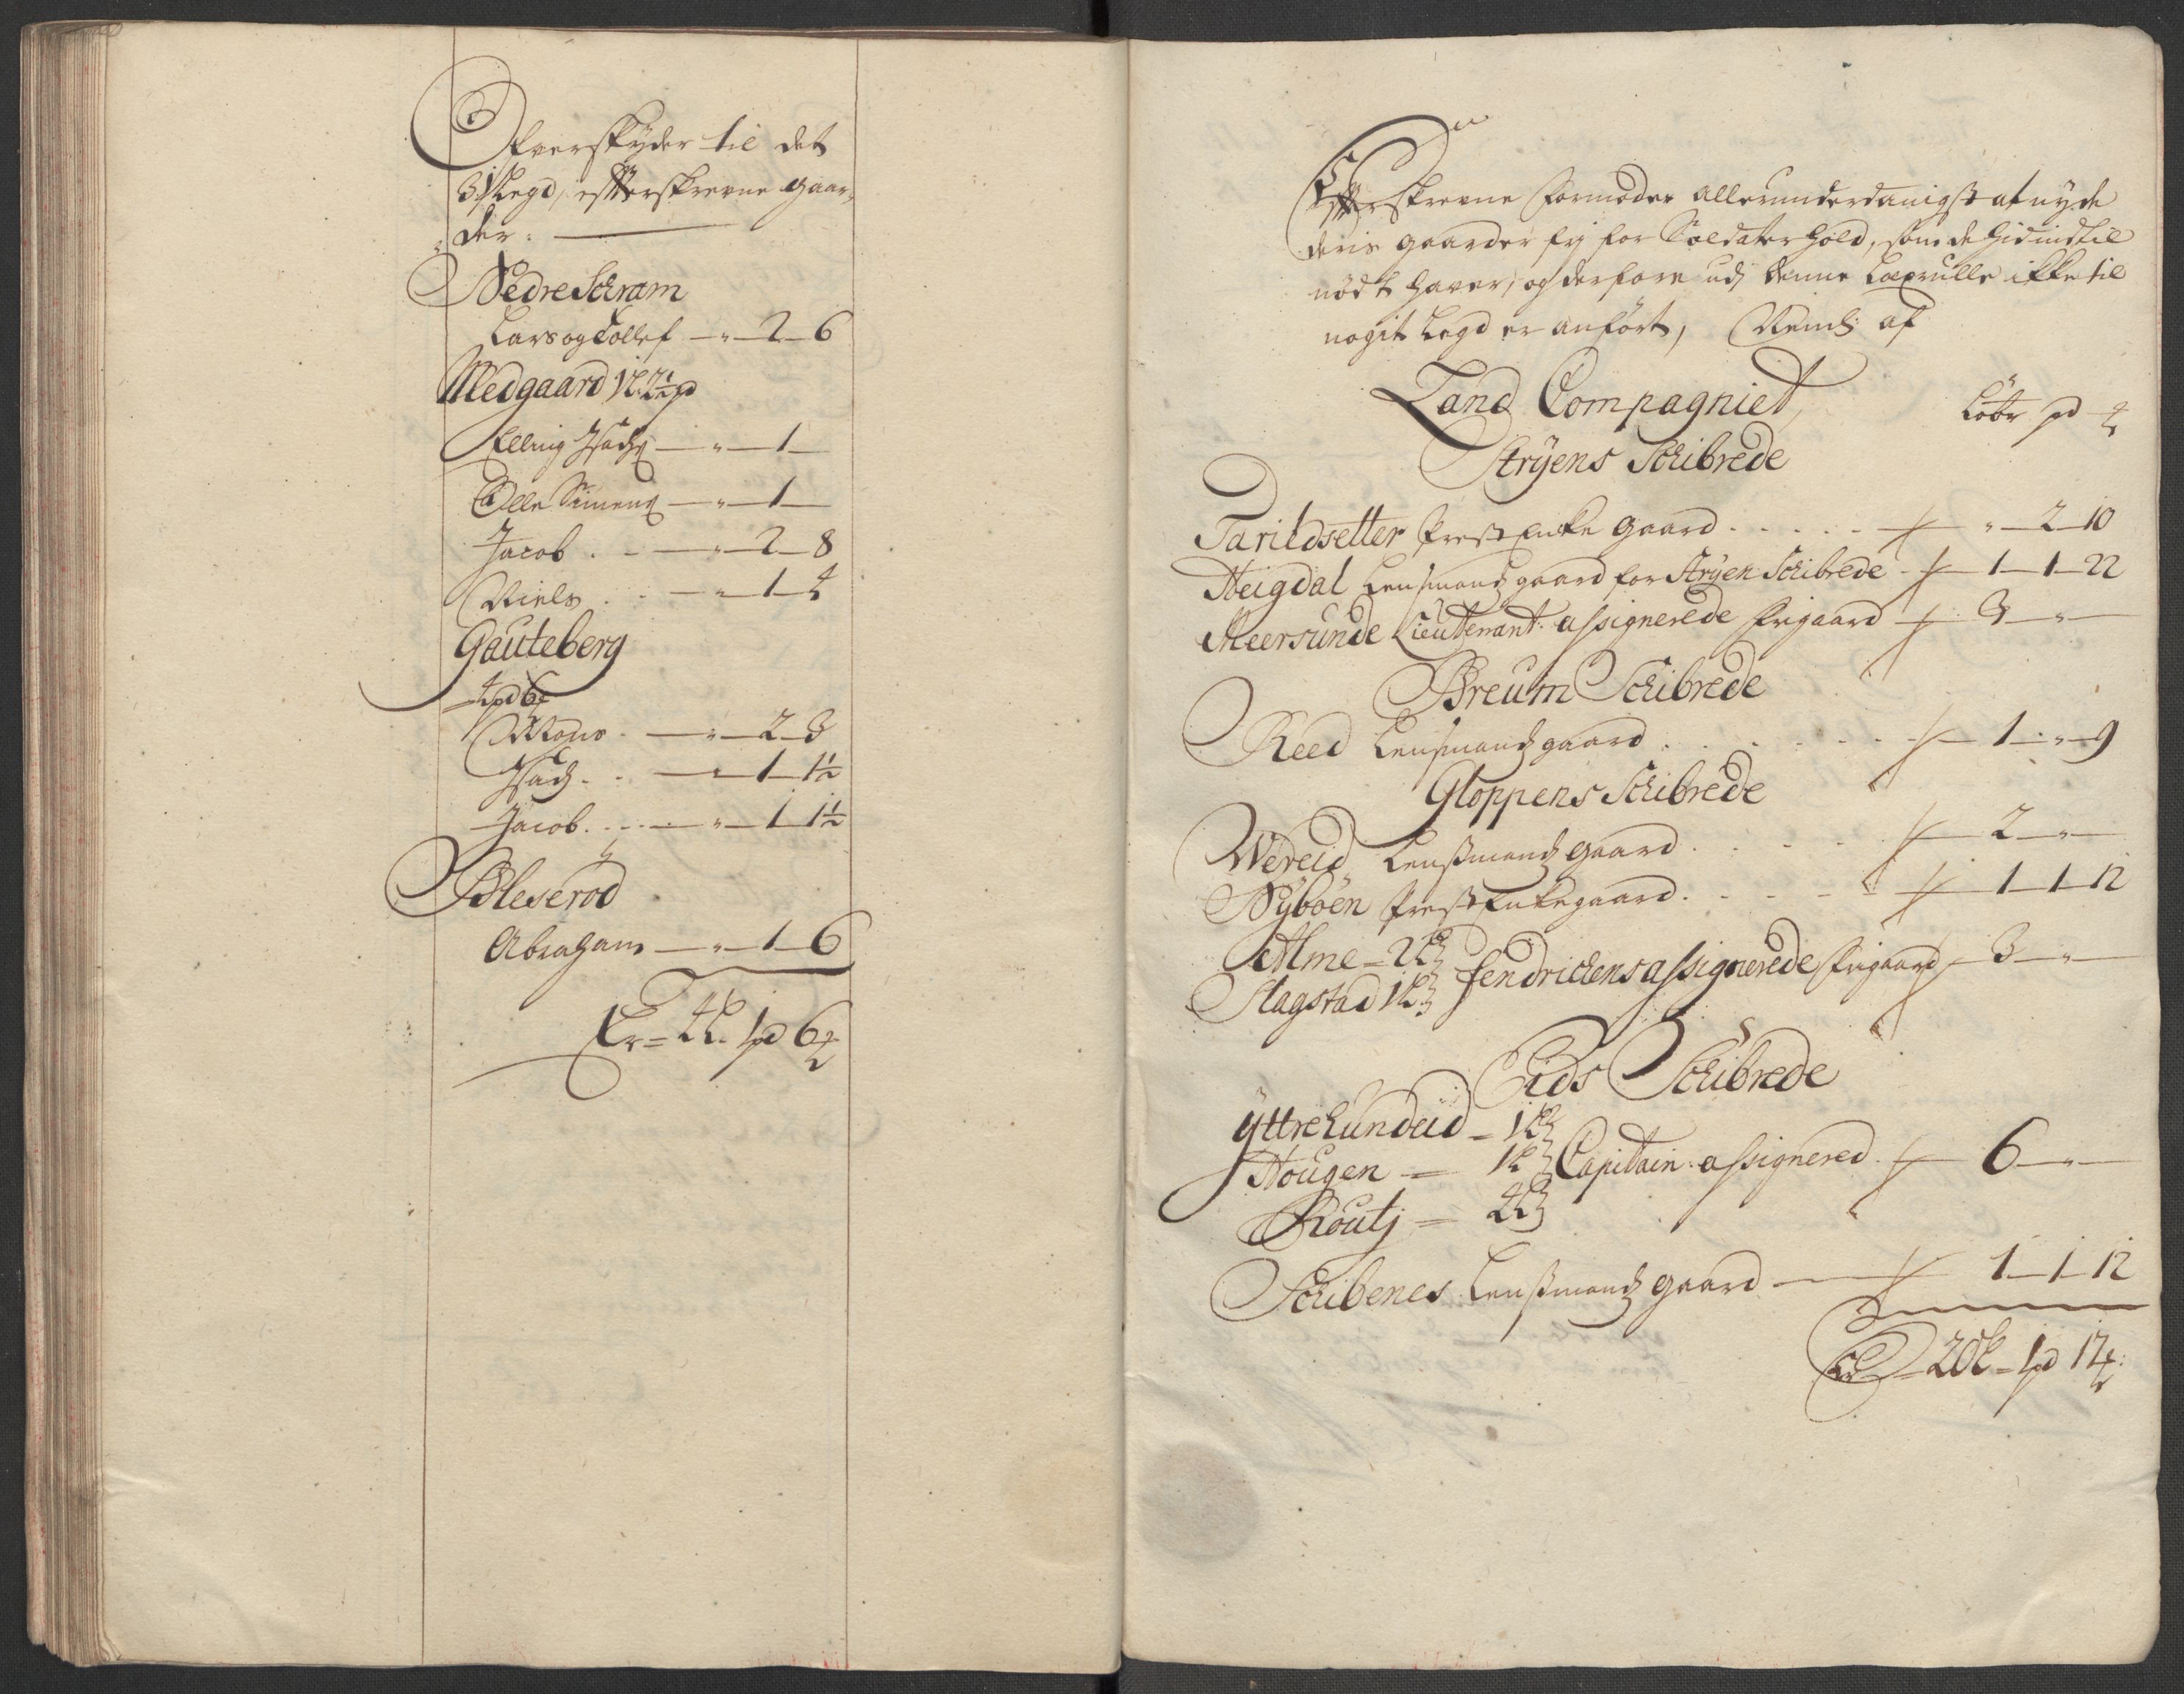 Ofverskyder til det
31 Legd, efterskrevne gaar,
der.
Nedre Schram
Lars og Tollef — " — 2 — 6
Medgaard 1 L 2½ pd
Elling Isachs — " — 1 —
Olle Simens — " — 1 —
Jacob . — " — 2 — 8
Niels . . — " — 1 — 4
Gauteberg
4 pd 6
Mons . — " — 2 — 3
Isach . . — " — 1 — 1½
Jacob . . . — " — 1 — 1½
Bleserod
Abraham — " — 1 — 6
Er = 4 L. 1 pd 6
Efterskrevne formoder allerunderdanigst at nyde
deris gaarder frj for Soldater hold, som de hidindtil
nødt haver, og derfore udj denne Laxrulle ikke til
nogit Legd er anført, Neml: af
Land Compagniet
Løbe pd
Stryens Schibrede
Tarildsetter Prest Enke gaard . . . . . " — 2 — 10
Heigdal Lensmands gaard for Stryen Schibrede — 1 — 1 — 22
Meersunde Lieutenant assignerede frigaard — 3 — " —
Breum Schibrede
Reed Lensmands gaard . . . . . . — 1 — " — 9
Gloppens Schibrede
Wereid Lensmands gaard . . . . — 2 — " —
Nyböen Prest Enkegaard . . . . — 1 — 1 — 12
Alme — 2 L
Slagstad 1 L fendrickens assignerede frigaard — 3 — " —
Eids Schibrede
Yttre Lundeid — 1 L
Hougen — 1 L Capitain assignered — 6 — " —
Routj — 4 L
Schibenes Lensmands gaard — 1 — 1 — 12
Er — 20 L — 1 pd 17